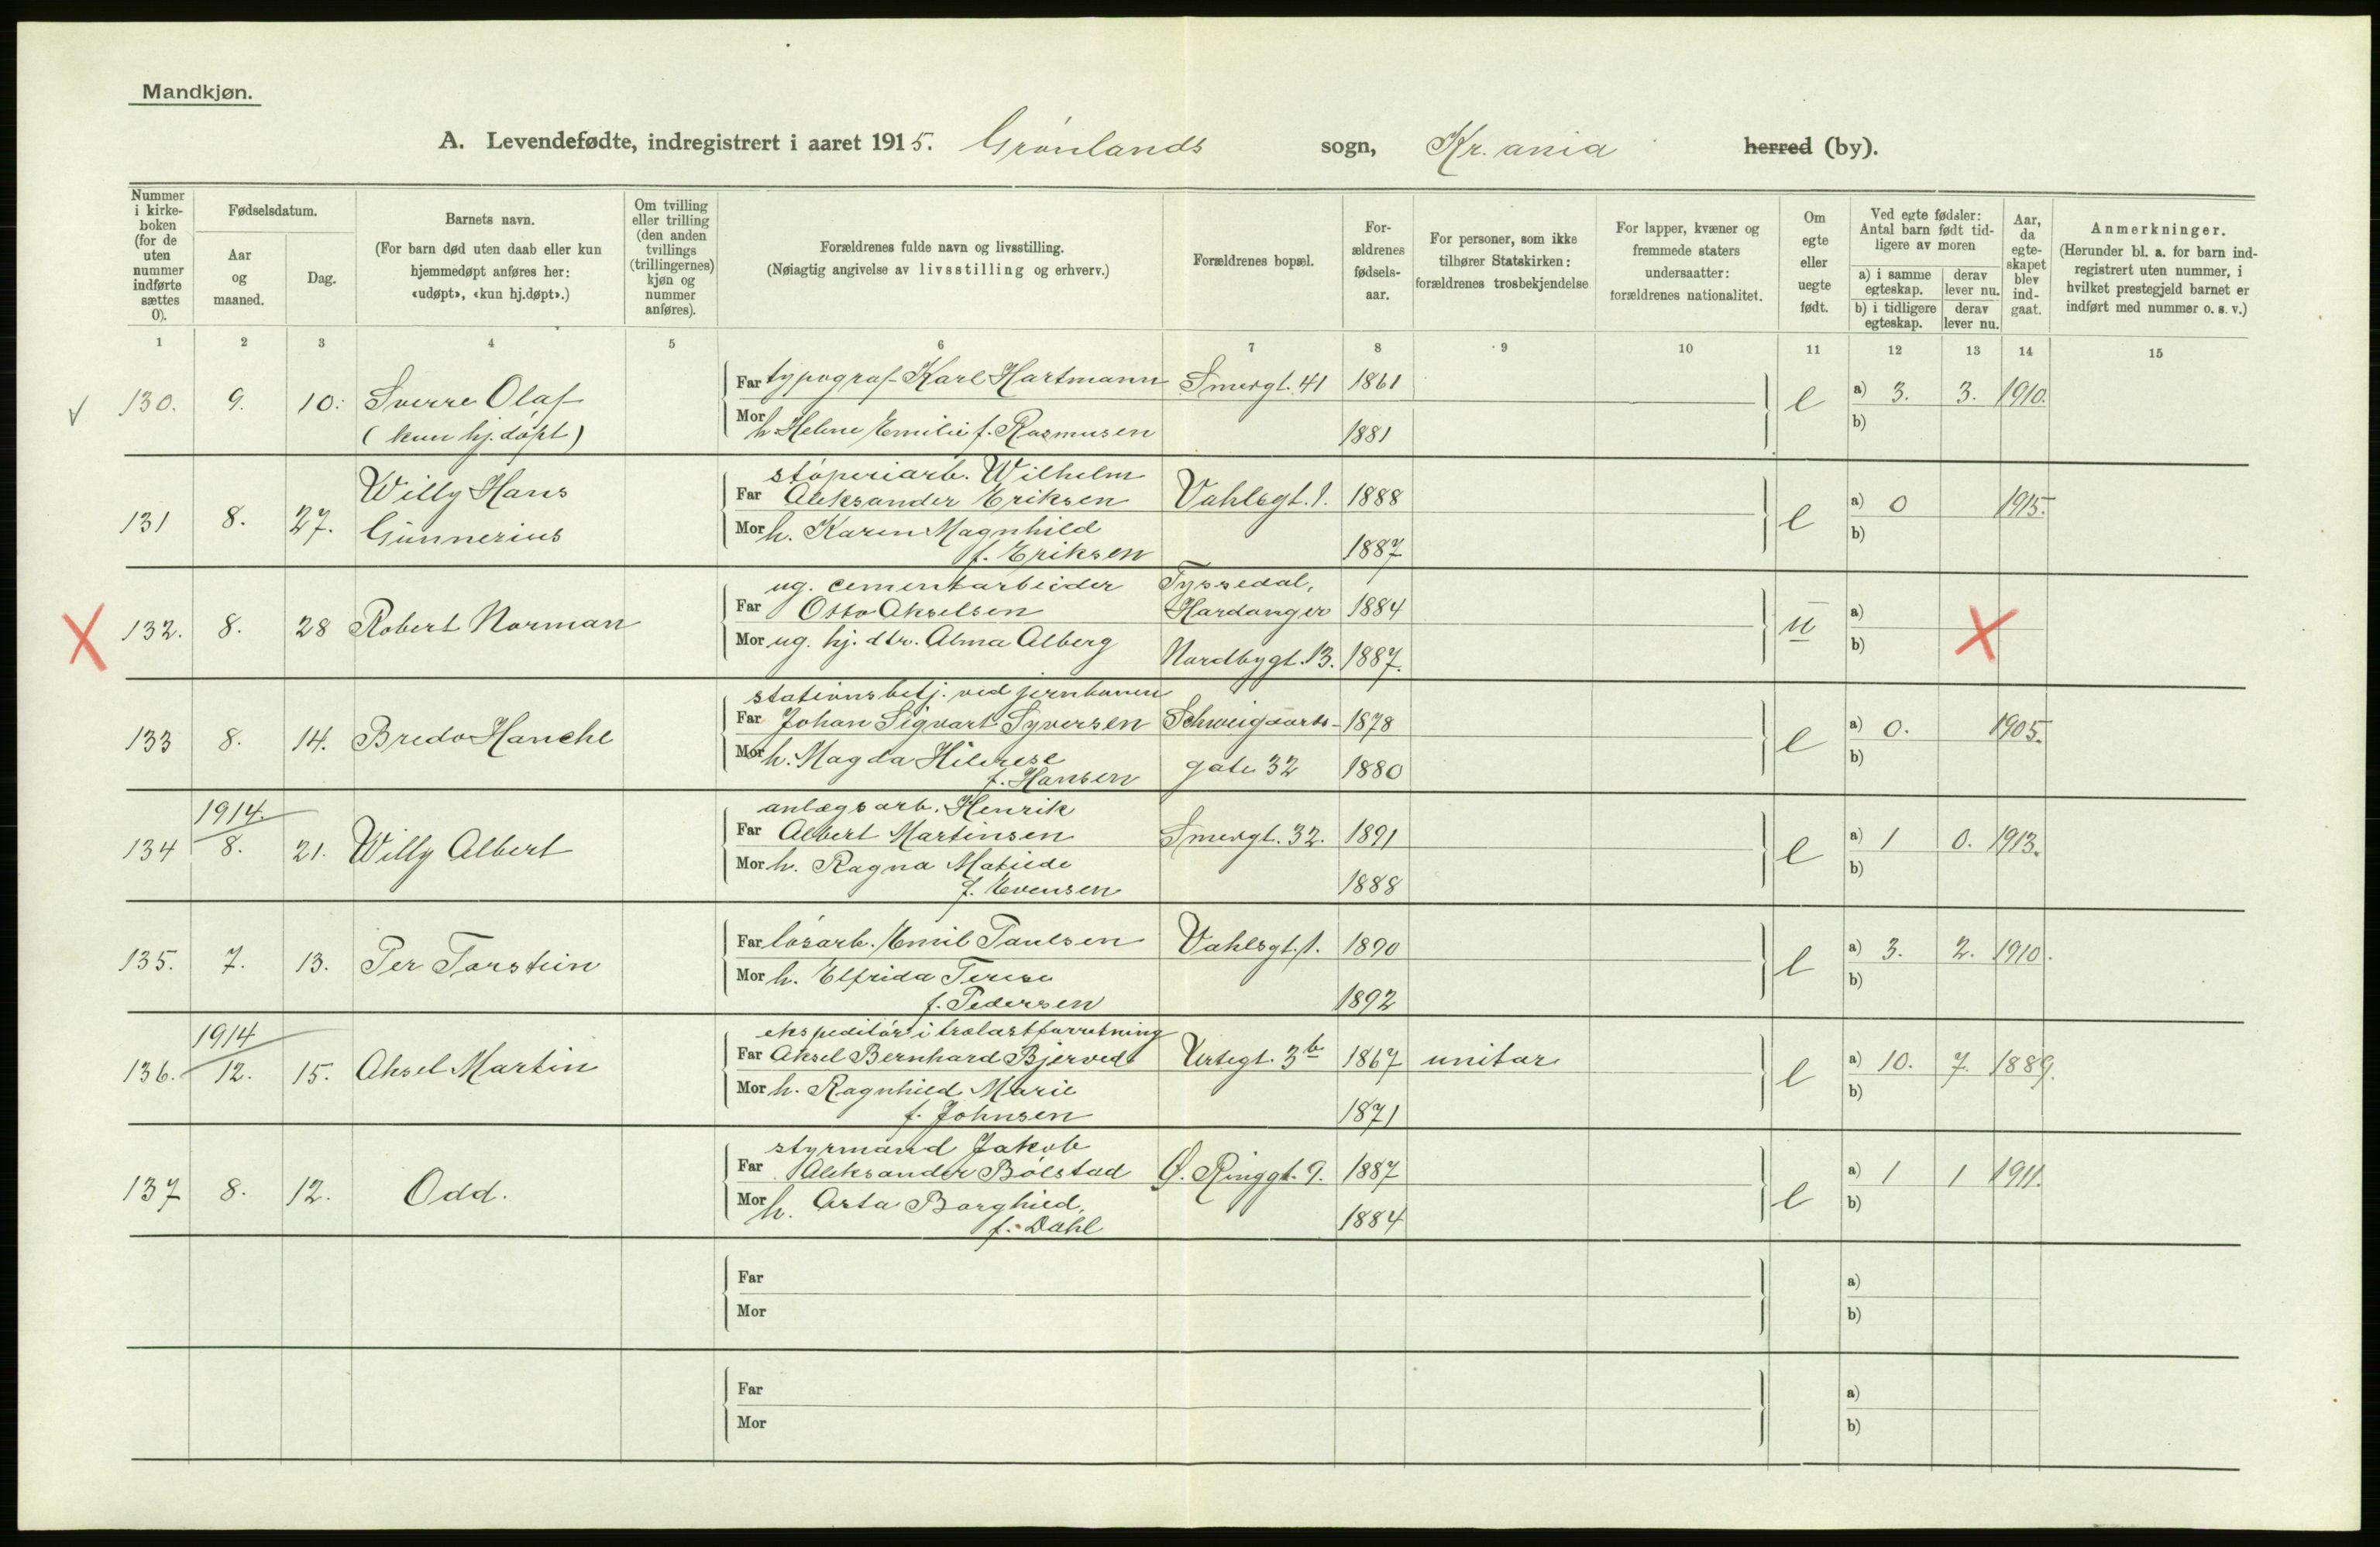 Mandkjøn.
A. Levendefødte, indregistrert i aaret 1915. Grønlands sogn, Kr.ania herred (by).
Nummer i kirke-boken (for de uten nummer indførte sættes 0).
Fødselsdatum.
Aar og maaned.
Dag.
Barnets navn.
(For barn død uten daab eller kun hjemmedøpt anføres her: «udøpt», «kun hj.døpt».)
Om tvilling eller trilling (den anden tvillings (trillingernes) kjøn og nummer anføres).
Forældrenes fulde navn og livsstilling.
(Nøiagtig angivelse av livsstilling og erhverv.)
Forældrenes bopæl.
For-ældrenes fødsels-aar.
For personer, som ikke tilhører Statskirken: forældrenes trosbekjendelse
For lapper, kvæner og fremmede staters undersaatter: forældrenes nationalitet.
Om egte eller uegte født.
Ved egte fødsler: Antal barn født tid-ligere av moren
a) i samme egteskap.
derav lever nu.
b) i tidligere egteskap.
derav lever nu.
Aar, da egte-skapet blev ind-gaat.
Anmerkninger.
(Herunder bl. a. for barn ind-registrert uten nummer, i hvilket prestegjeld barnet er indført med nummer o. s. v.)
1 2 3 4 5 6 7 8 9 10 11 12 13 14 15
V 130. 9. 10. Sverre Olaf Far typograf Karl Hartmann Smergt. 41 1861 e a) 3. 3. 1910.
(kun hj. døpt) Mor h. Helene Emilie f. Rasmusen 1881 b)
støperiarb. Wilhelm
131 8. 27. Willy Hans Far Aleksander Eriksen Vahlsgt. 1. 1888 e a) 0 1915.
Gunnerius Mor h. Karen Magnhild b)
f. Eriksen 1887
ug. cementarbeider Tyssedal,
X 132. 8. 28 Robert Norman Far Otto Akselsen Hardanger 1884 u a) X
Mor ug. hj. dtr. Alma Alberg Nordbygt. 13. 1887. b)
stationsbetj. ved jernbanen
133 8. 14. Bredo Hanche Far Johan Sigvart Syversen Schweigaards- 1878 e a) 0. 1905.
Mor h. Magda gate 32 1880 b)
f. Hansen
1914. anlægsarb. Henrik
134 8. 21. Willy Albert Far Albert Martinsen Smergt. 32. 1891 e a) 1 0. 1913.
Mor h. Ragna Matilde b)
f. Evensen 1888
135. 7. 13. Per Torstein Far løsarb. Emil Paulsen Vahlsgt. 1. 1890 e a) 3. 2. 1910.
Mor h. Elfrida Terese b)
f. Pedersen 1892
1914 ekspeditør i trælastforretning
136. 12. 15. Aksel Martin Far Aksel Bernhard Bjerved Urtegt. 3b 1867 unitar e a) 10. 7. 1889.
Mor h. Ragnhild Marie b)
f. Johnsen 1871
styrmand Jakob
137 8. 12. Odd. Far Aleksander Bølstad Ø. Ringgt. 9. 1887 e a) 1 1 1911.
Mor h. Asta Borghild, b)
f. Dahl 1884
Far a)
Mor b)
Far a)
Mor b)